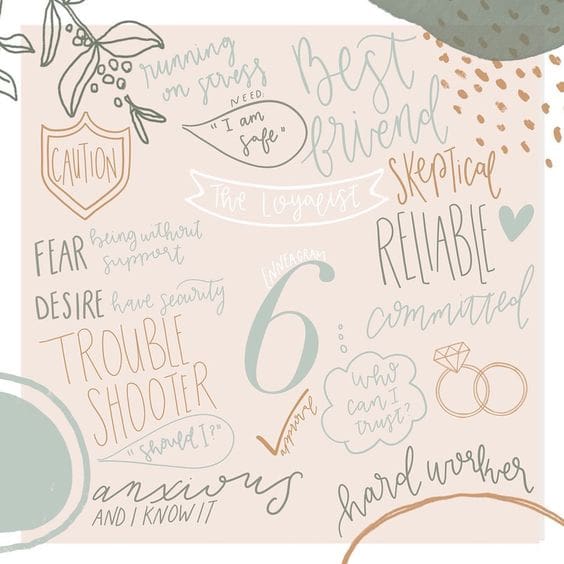 running
on stress
Best
friend
NEED:
"I am
safe"
CAUTION
The Loyalist
SKEPTICAL
RELIABLE
FEAR being without
support
ENNEAGRAM
6
DESIRE have security
committed
TROUBLE
SHOOTER
who
can I
trust?
"should I?"
anxious
AND I KNOW IT
hard worker